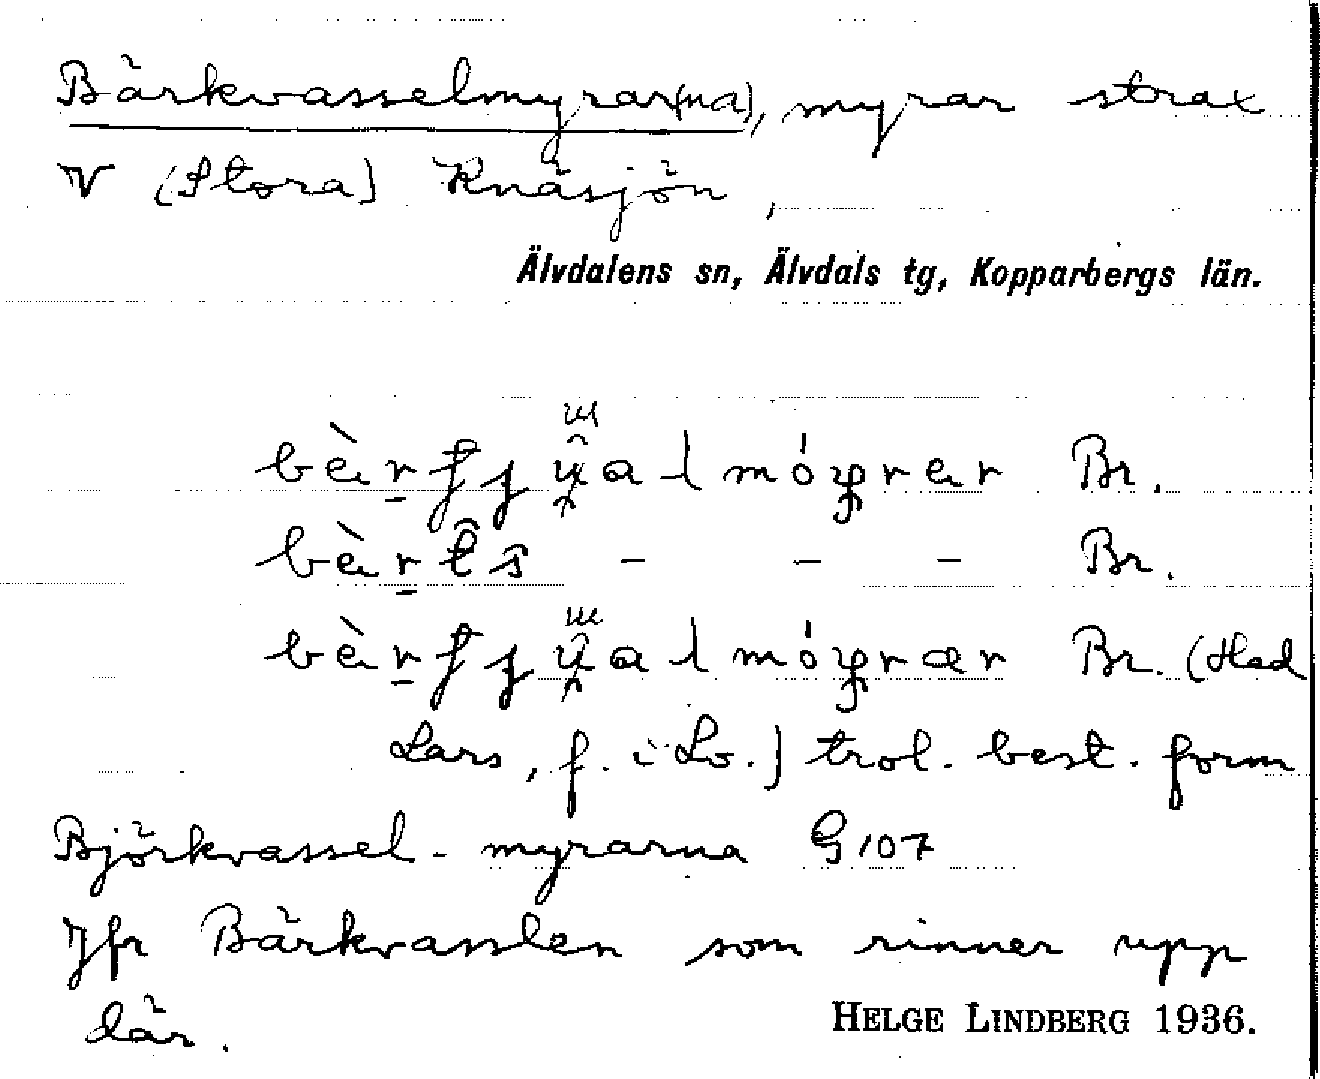 Bärkvasselmyrar(na), myrar strax
V (Stora) Knäsjön,
Älvdalens sn, Älvdals tg, Kopparbergs län.
Br.
Br.
Br. (Had
Lars, f. i Lo.) trol. best. form
Björkvassel-myrarna G107
Jfr Bärkvasslen som rinner upp
där.
HELGE LINDBERG 1936.